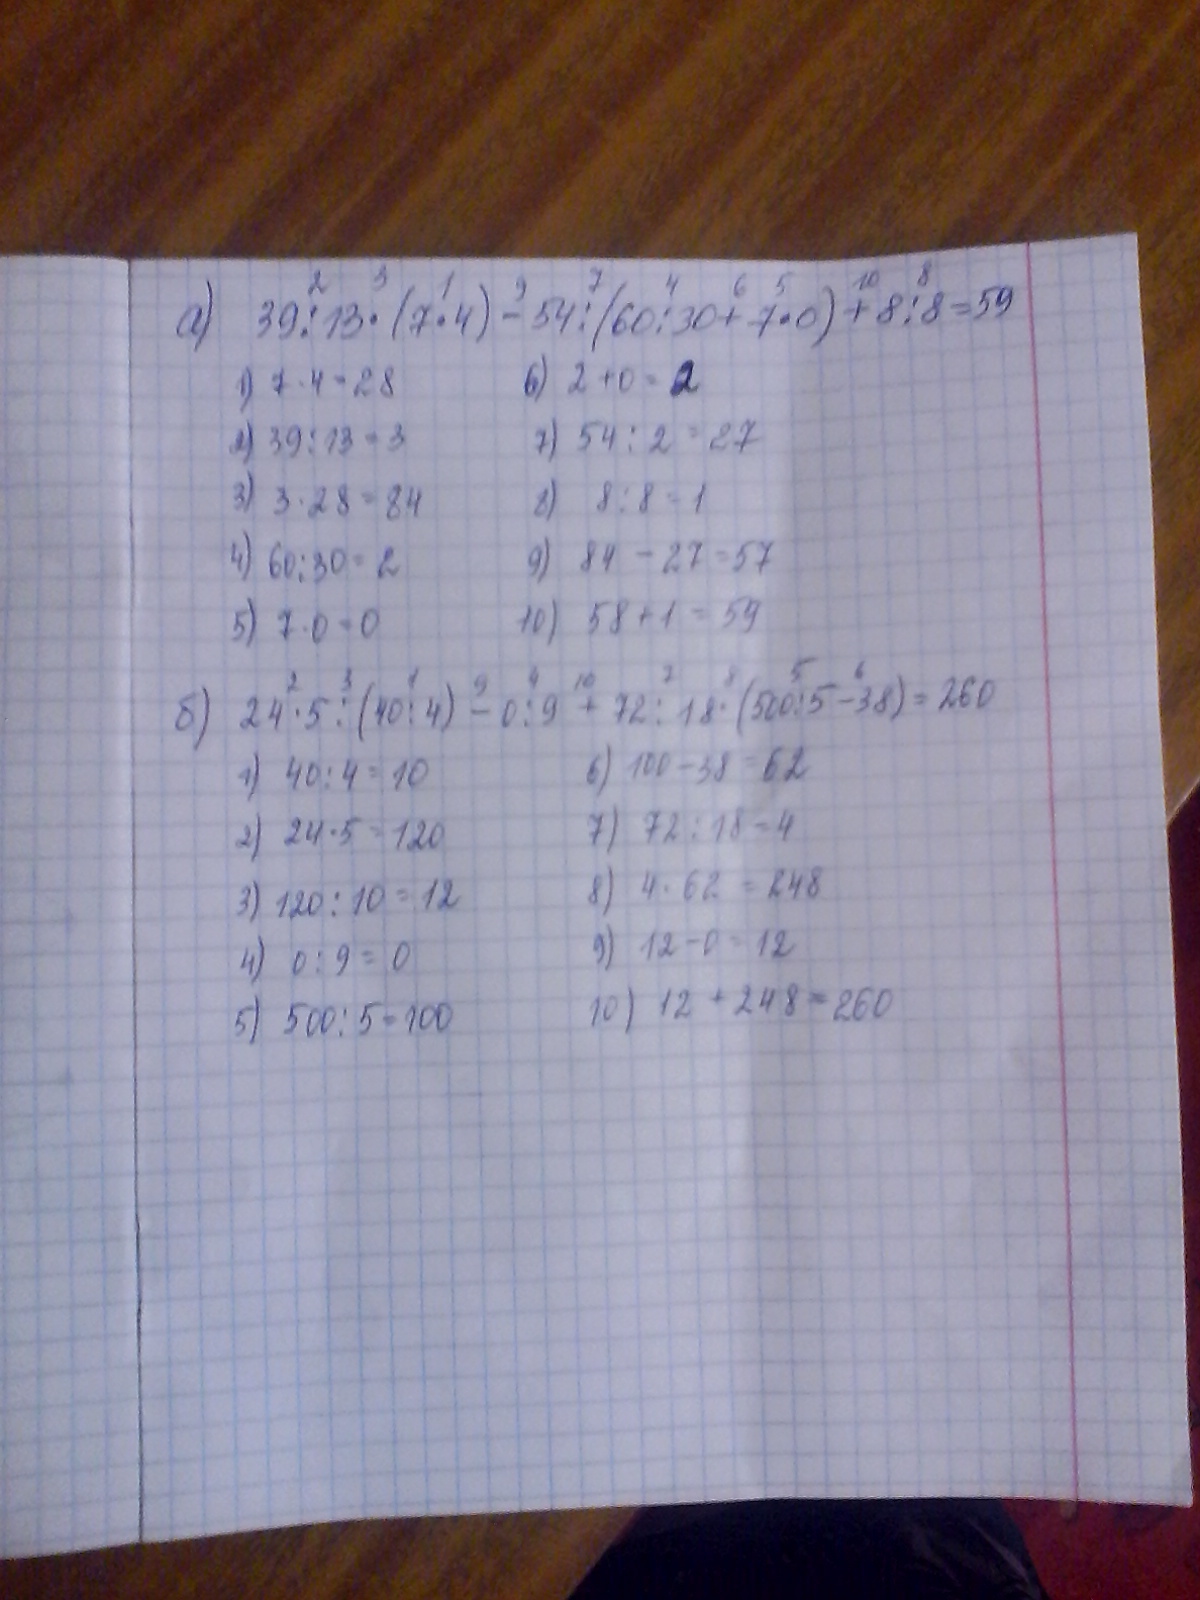 2 3 1 9 7 4 6 5 10 8
а) 39:13·(7·4)-54:(60:30+7·0)+8:8=59
1) 7·4=28 6) 2+0=2
2) 39:13=3 7) 54:2=27
3) 3·28=84 8) 8:8=1
4) 60:30=2 9) 84-27=57
5) 7·0=0 10) 58+1=59
2 3 1 9 4 10 7 8 5 6
б) 24·5:(40:4)-0:9+72:18·(500:5-38)=260
1) 40:4=10 6) 100-38=62
2) 24·5=120 7) 72:18=4
3) 120:10=12 8) 4·62=248
4) 0:9=0 9) 12-0=12
5) 500:5=100 10) 12+248=260